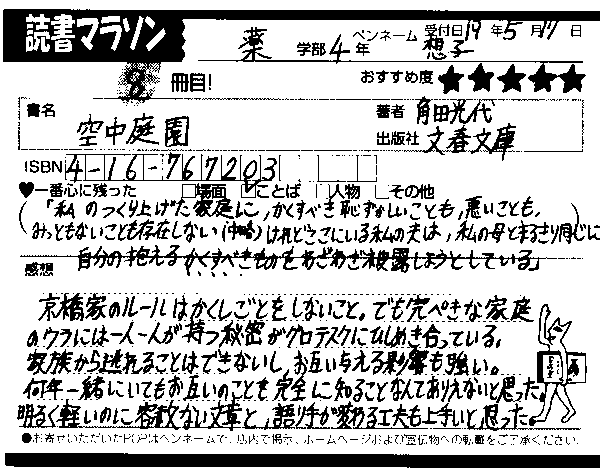 読書マラソン
薬 学部 4 年 ペンネーム 想子 受付日 19 年 5 月 17 日
8 冊目! おすすめ度 ★★★★★
書名 空中庭園 著者 角田光代
出版社 文春文庫
ISBN 4-16-767203
♥一番心に残った □場面 ☑ことば □人物 □その他
「私のつくり上げた家庭に、かくすべき恥ずかしいことも、悪いことも、
みっともないことも存在しない(中略)けれどここにいる私の夫は、私の母とまるきり同じに
自分の抱えるかくすべきものをわざわざ披露しようとしている」
感想
京橋家のルールはかくしごとをしないこと。でも完ぺきな家庭
のウラには一人一人が持つ秘密がグロテスクにひしめき合っている。
家族から逃れることはできないし、お互い与える影響も強い。
何年一緒にいてもお互いのことを完全に知ることなんてありえないと思った。
明るく軽いのに容赦ない文章と、語り手が変わる工夫も上手いと思った。
●お寄せいただいたPOPはペンネームで、店内で掲示、ホームページおよび宣伝物への転載をご了承ください。